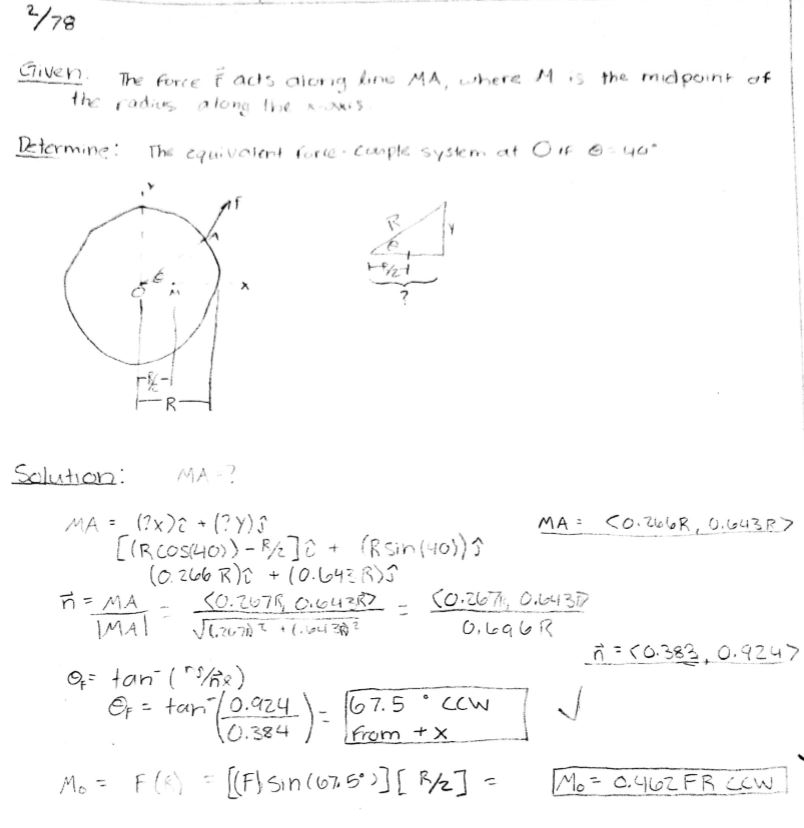 2/78
Given: The force F⃗ acts along line MA, where M is the midpoint of
the radius along the x-axis
Determine: The equivalent force-couple system at O if θ=40°
y
F
A
O
M
x
R/2
R
R
θ
y
R/2
?
Solution: MA=?
MA = (?x)î + (?y)ĵ
MA = <0.266R, 0.643R>
[(Rcos(40))-R/2]î + (Rsin(40))ĵ
(0.266R)î + (0.643R)ĵ
n⃗ = MA/|MA| = <0.267R, 0.643R>/√(.267R)² + (.643R)² = <0.267R, 0.643R>/0.696R
n⃗ = <0.383, 0.924>
θF = tan⁻(
θF = tan⁻(0.924/0.384) = 67.5° CCW from +x ✓
Mo = F(R) = [(F)sin(67.5°)][R/2] = Mo = 0.462FR CCW